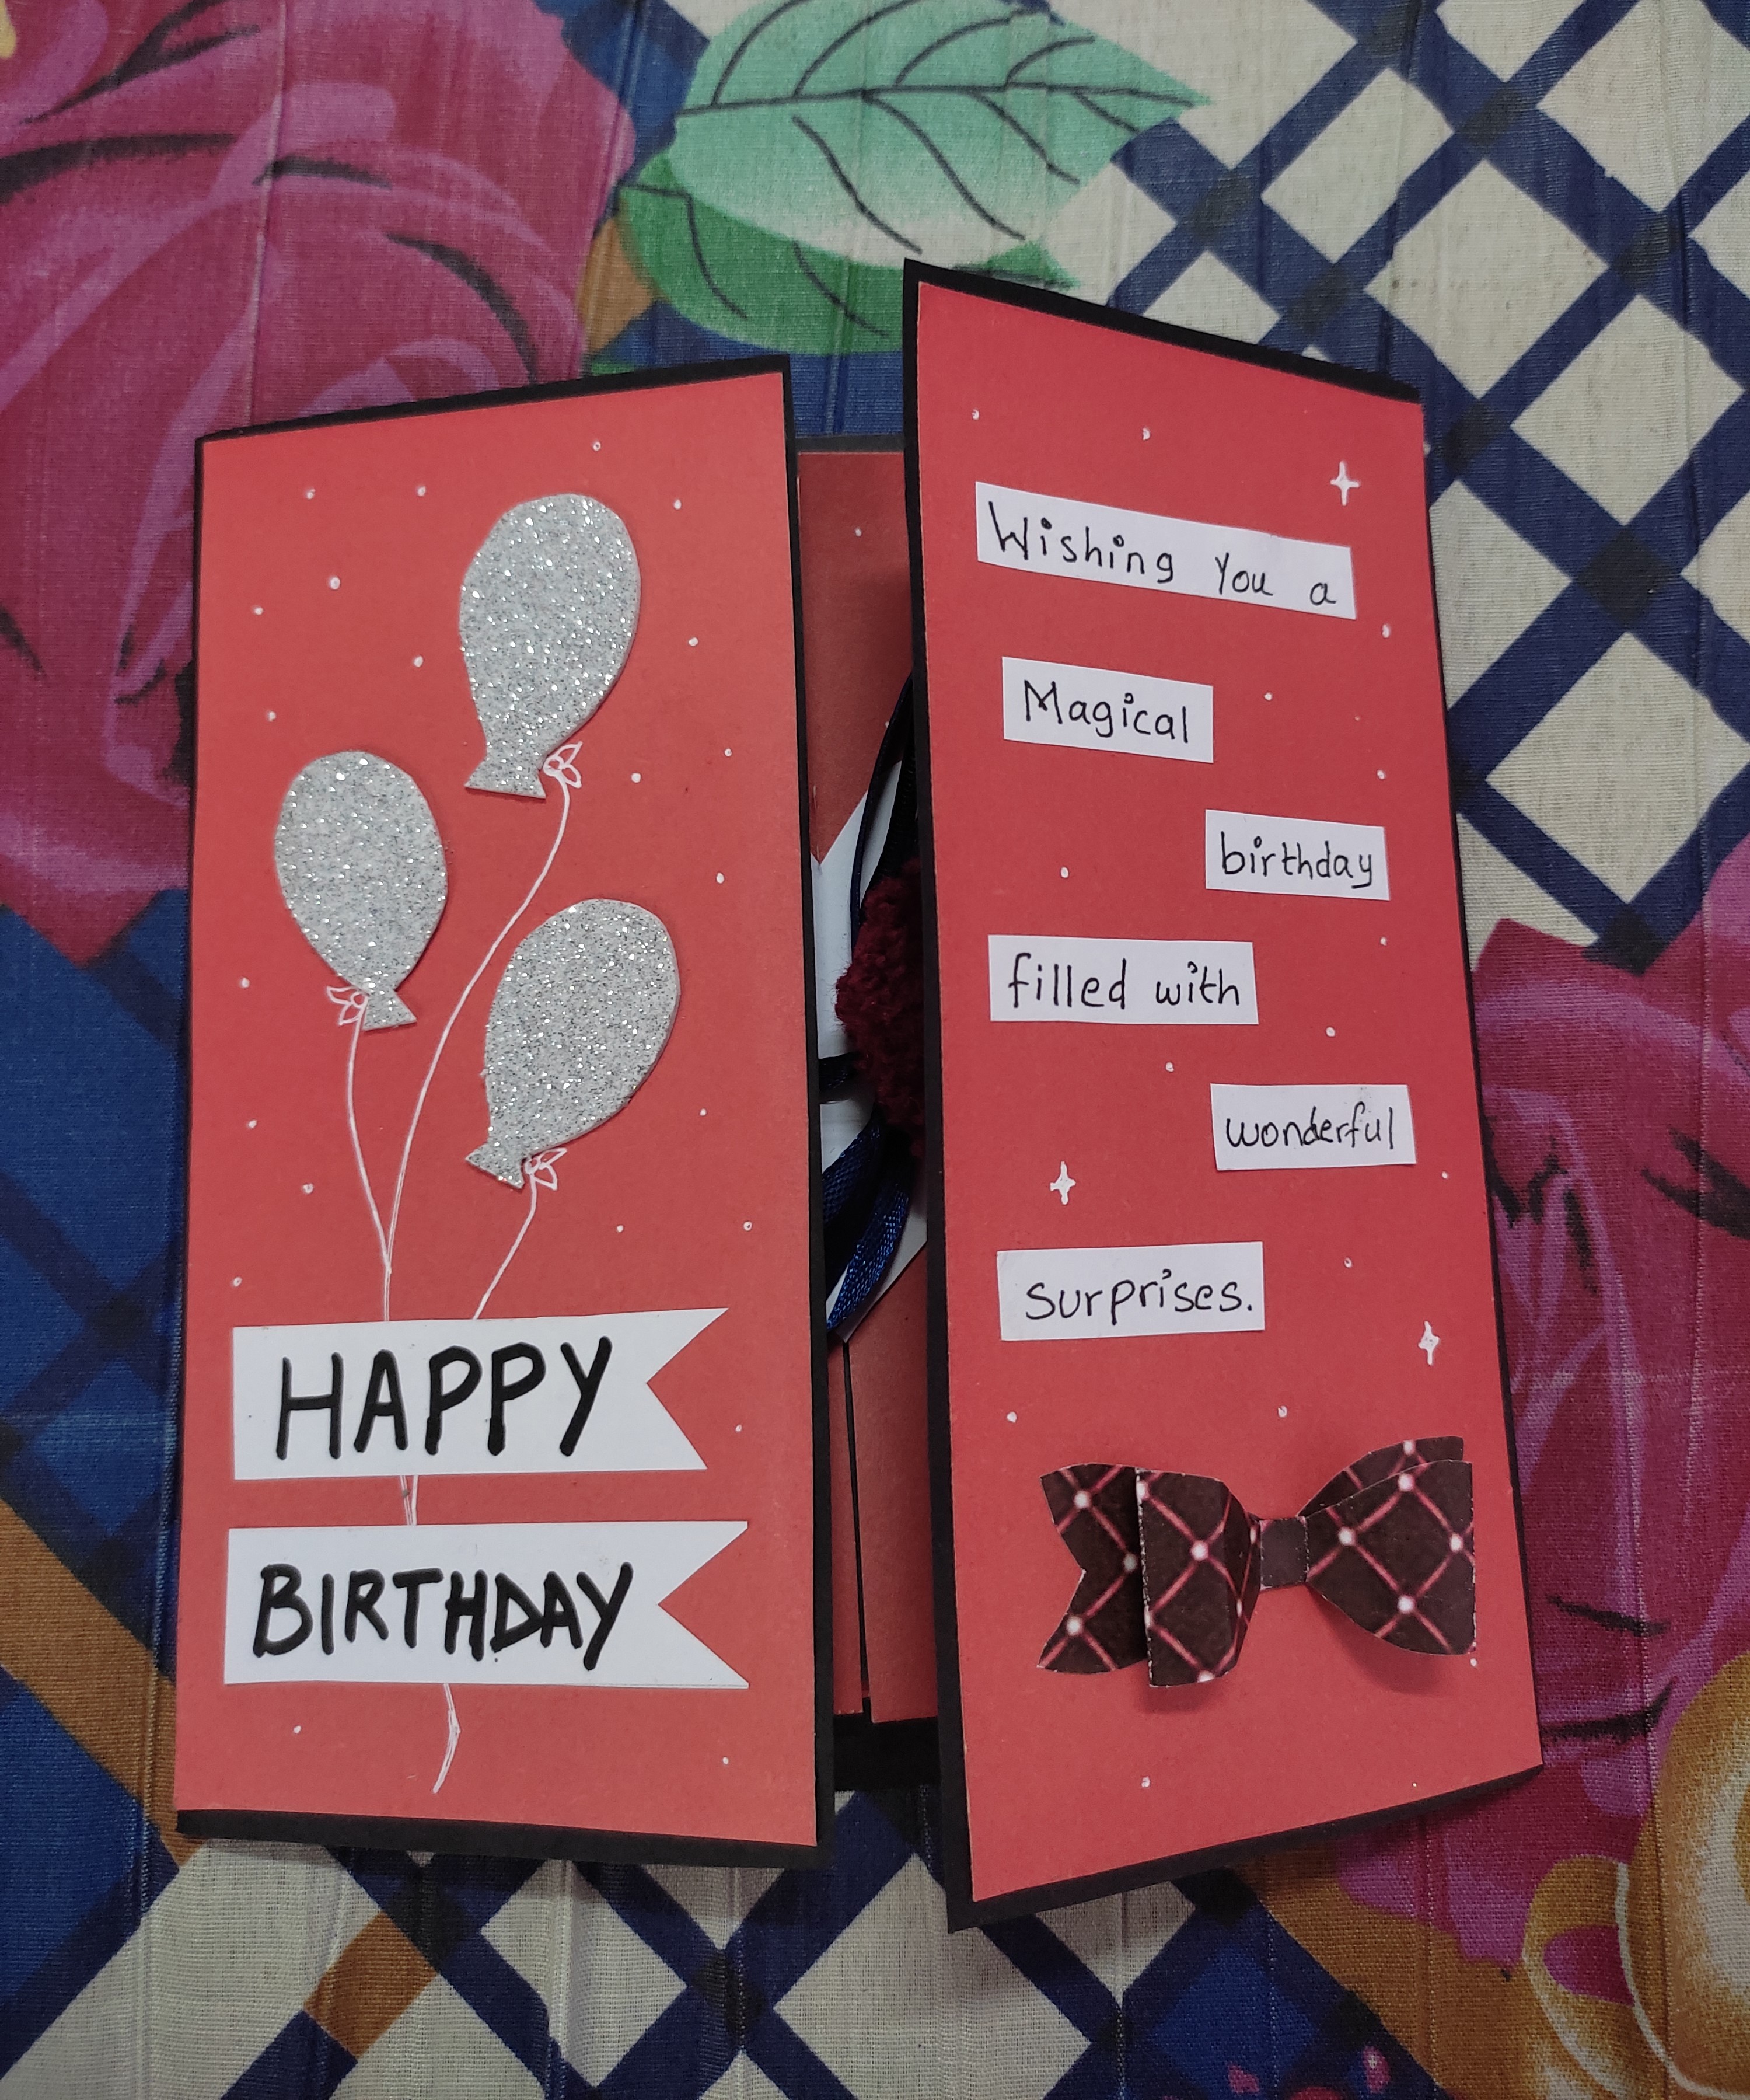 HAPPY
BIRTHDAY
Wishing you a
Magical
birthday
filled with
wonderful
surprises.